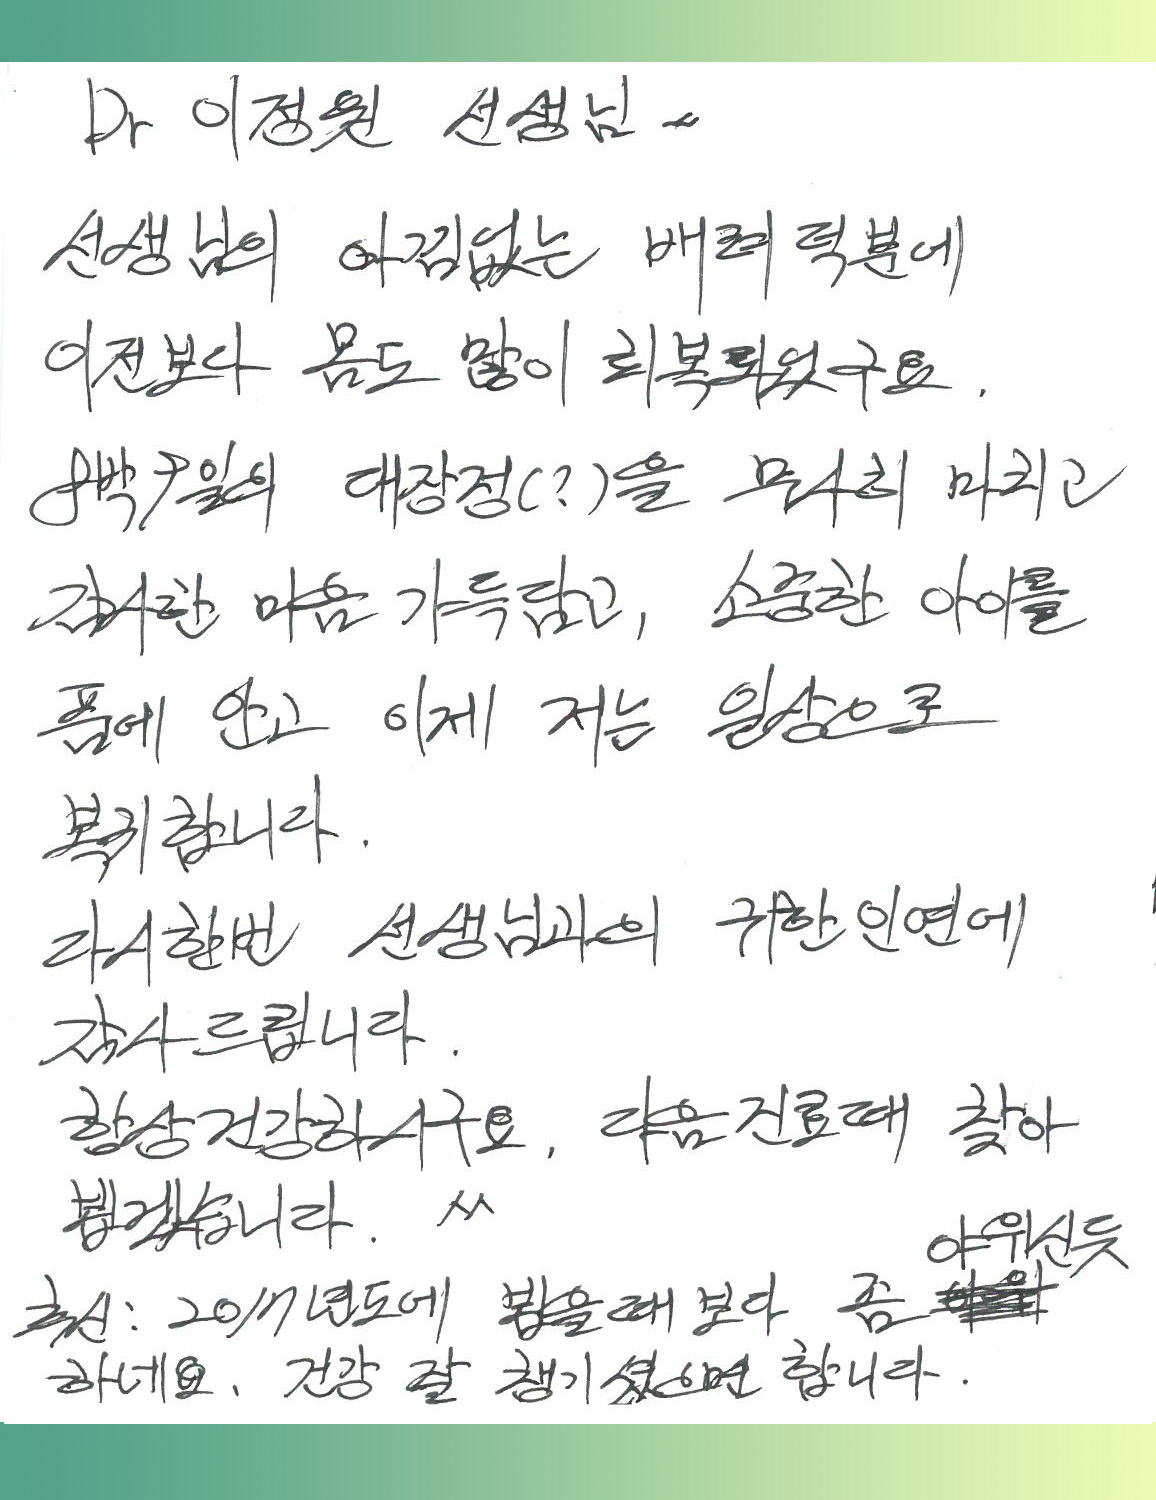 Dr 이정원 선생님~
선생님의 아낌없는 배려 덕분에
이전보다 몸도 많이 회복되었구요.
8박9일의 대장정(?)을 무사히 마치고
감사한 마음 가득담고, 소중한 아이를
품에 안고 이제 저는 일상으로
복귀합니다.
다시한번 선생님과의 귀한인연에
감사드립니다.
항상건강하시구요, 다음진료때 찾아
뵙겠습니다. ^^
추신: 2017년도에 뵀을때보다 좀 야위신듯
하네요. 건강 잘 챙기셨으면 합니다.